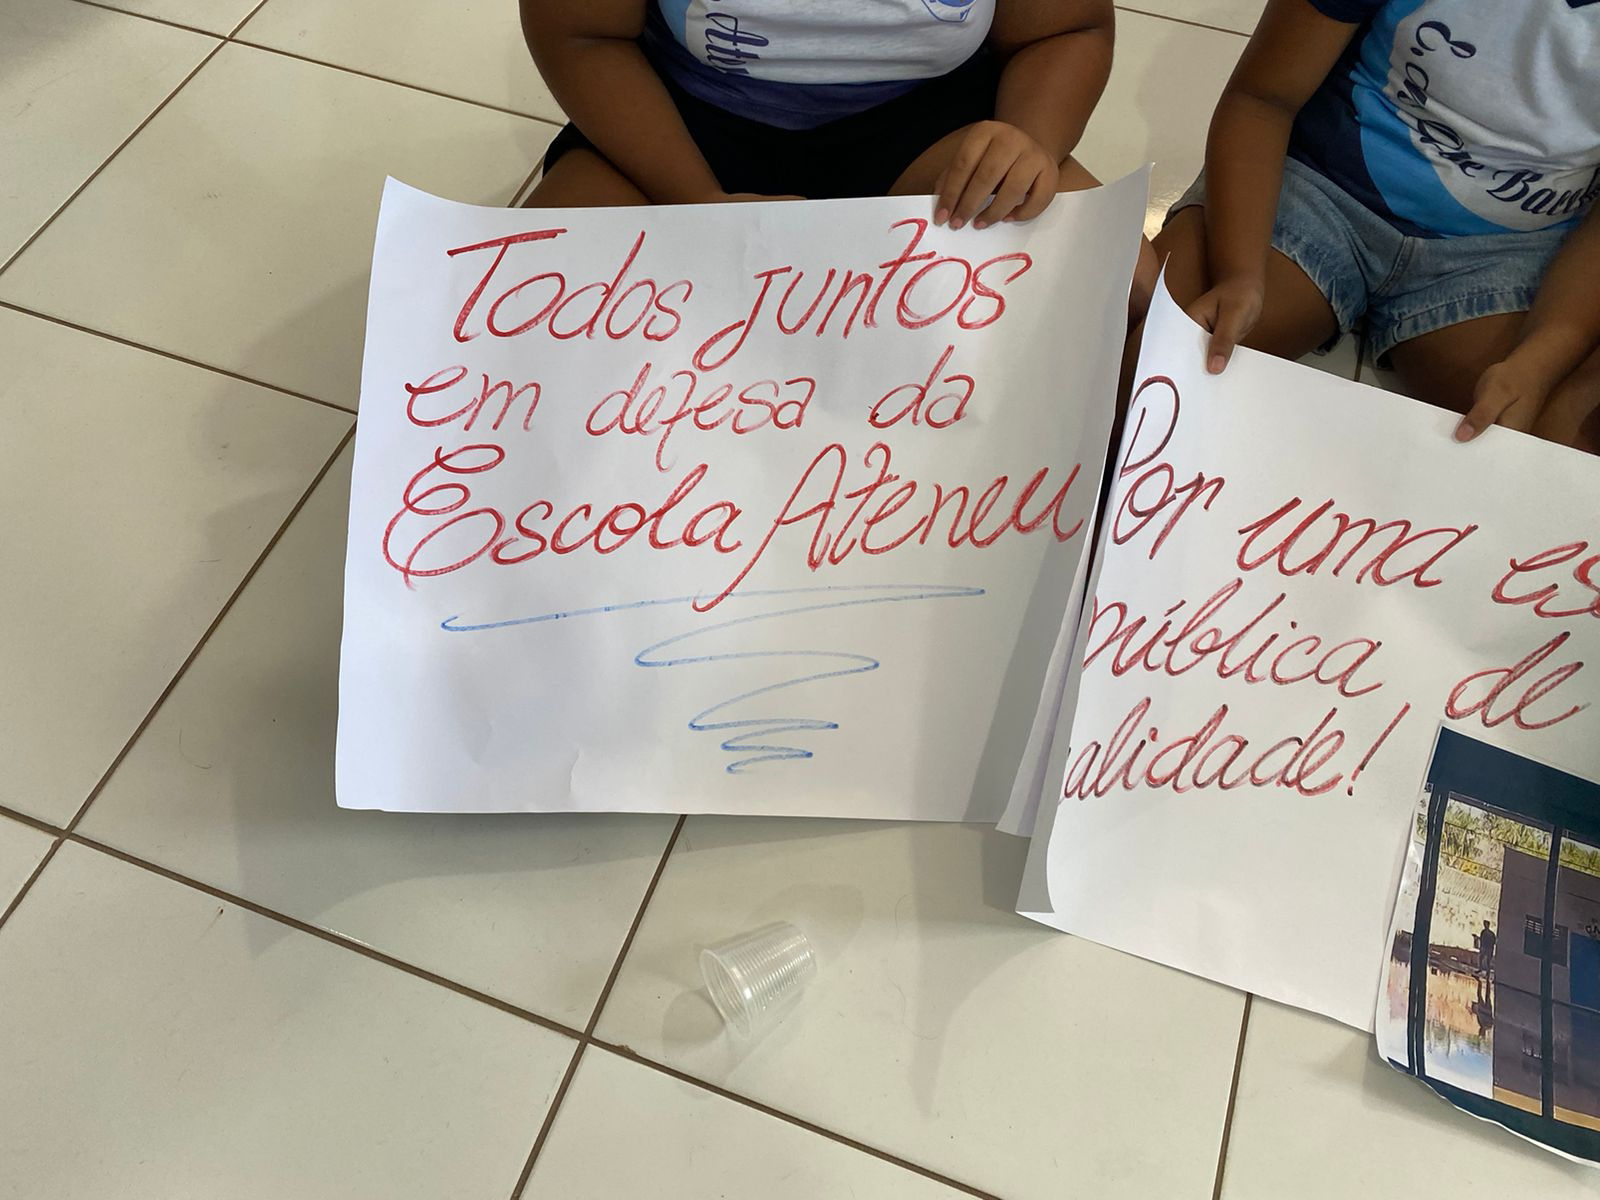 Todos juntos
em defesa da
Escola Ateneu
Por uma es
pública de
alidade!